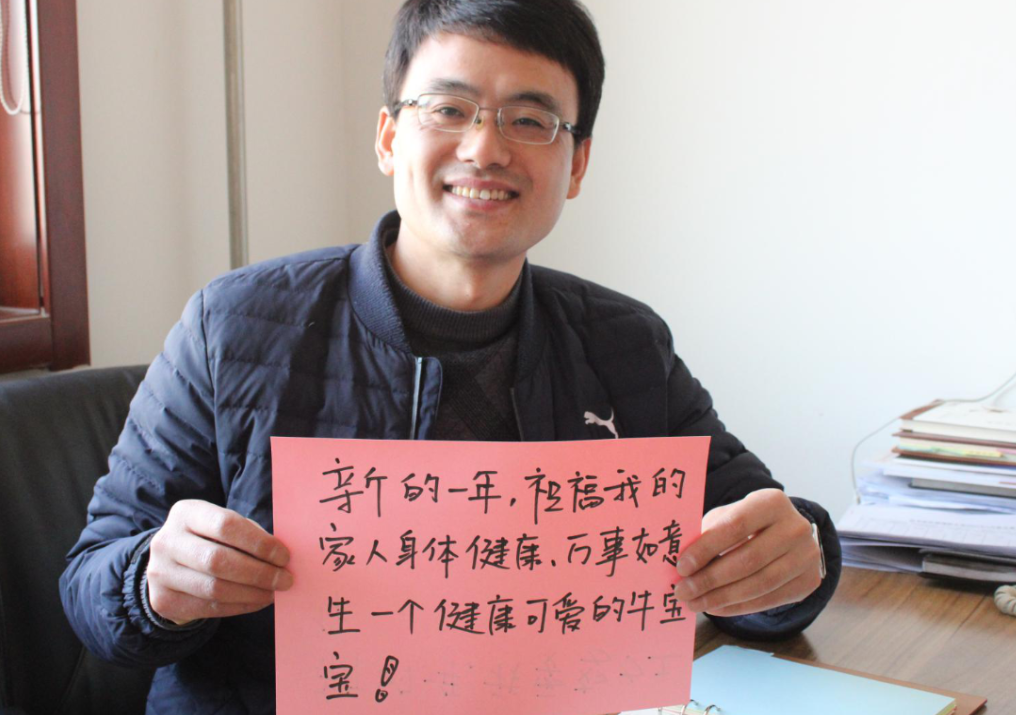 新的一年,祝福我的
家人身体健康、万事如意
生一个健康可爱的牛宝
宝!